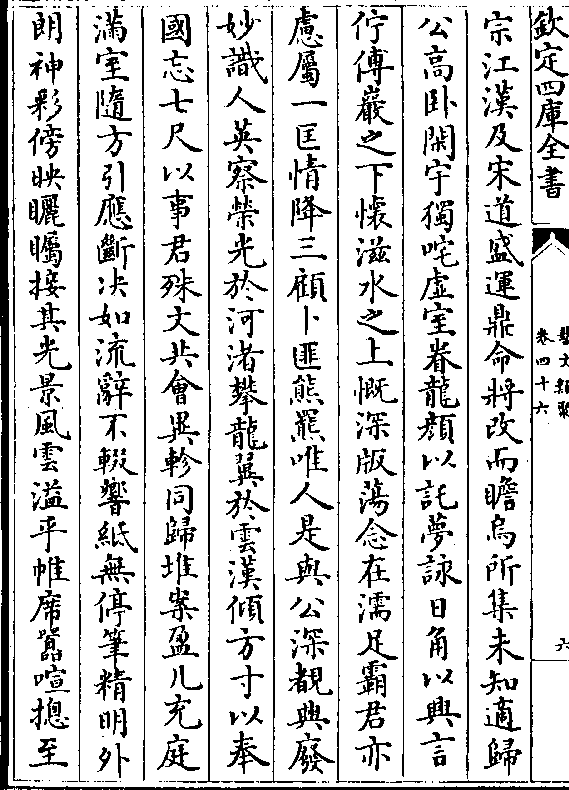 欽定四庫全書
藝文類聚
卷四十六
六
宗江漢及宋道盛運鼎命將改而瞻烏所集未知適歸
公高卧閑宇獨咤虛室眷龍顔以託夢詠日角以興言
佇傅巖之下懷滋水之上慨深版蕩念在濡足霸君亦
慮屬一匡情降三顧卜匪熊羆唯人是與公深覩興廢
妙識人英察榮光於河渚攀龍翼於雲漢傾方寸以奉
國忘七尺以事君殊文共會異軫同歸堆案盈几充庭
滿室隨方引應斷决如流辭不輟響紙無停筆精明外
朗神彩傍映曬矚接其光景風雲溢乎帷席囂喧揔至